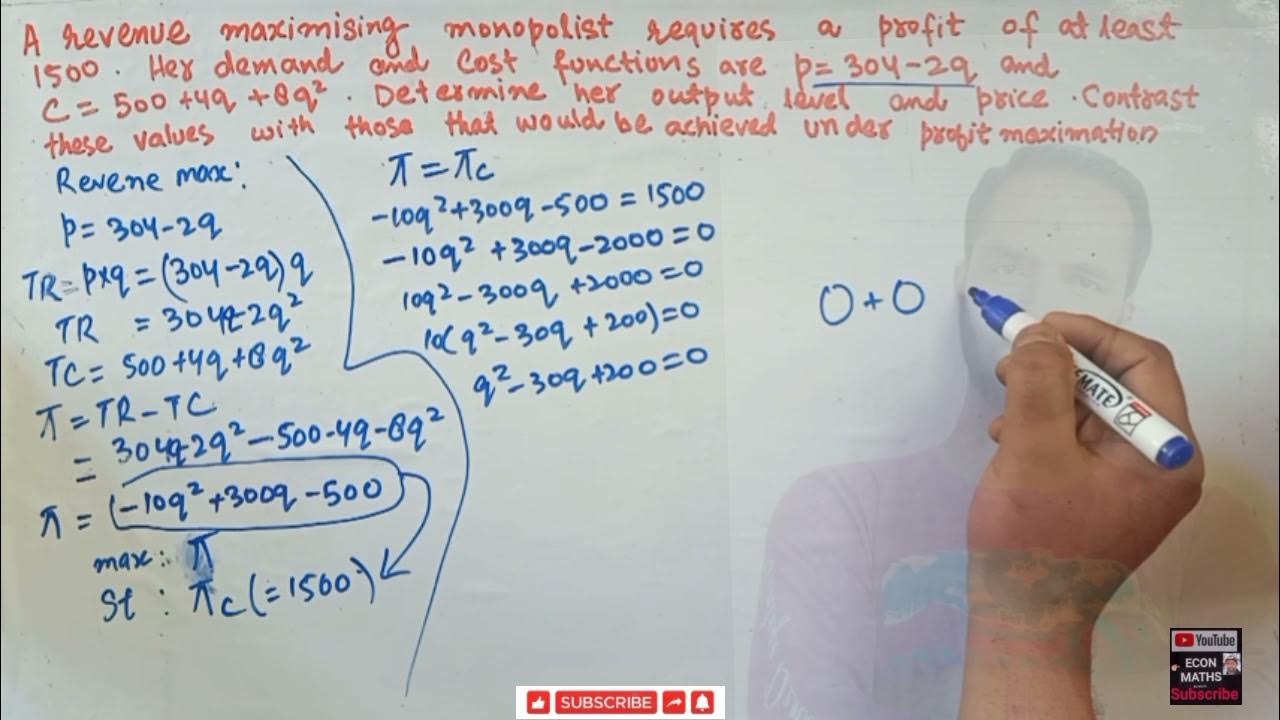 A revenue maximising monopolist requires a profit of at least
1500. Her demand and cost functions are p= 304-2q and
C = 500+4q+8q². Determine her output level and price. Contrast
these values with those that would be achieved under profit maximation
Revene max:
p= 304-2q
TR= p×q = (304-2q)q
TR = 304q-2q²
TC= 500+4q+8q²
π = TR-TC
= 304q-2q²-500-4q-8q²
π = (-10q²+300q-500
max: π
St : πc (=1500)
π = πc
-10q²+300q-500 = 1500
-10q² +300q-2000 =0
10q²-300q +2000 =0
10(q²-30q +200)=0
q²-30q+200=0
0+0
MATE
YouTube
ECON
MATHS
Subscribe
SUBSCRIBE